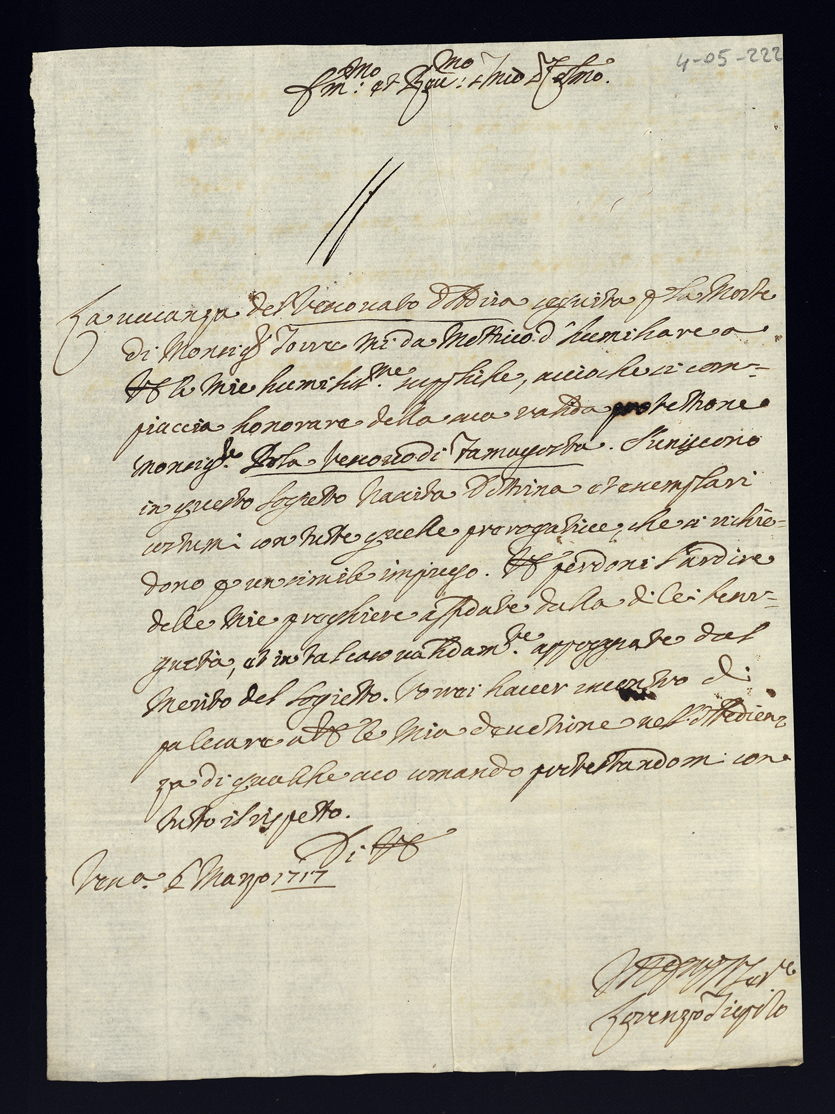 4-05-222
Em.mo et Reu.mo
La uacanza del Vescouato d'Adria seguita p la Morte
di Monsig.r Torre Mi da Mottiuo d'humiliare a
VE le Mie humiliss.me suppliche, acciò che si com=
piaccia honorare della sua ualida protettione
Monsig.r Pola Vescouo di Famagosta. S'uniscono
in questo sogietto Nascita Dottrina et exemplari
costumi con tutte quelle prerogatiue, che si richie=
dono p un simile impiego. VE perdoni l'ardire
delle Mie preghiere affidate dalla di lei beni=
gnità, et in tal caso ualidam.te appoggiate dal
Merito del sogietto. Vorrei hauer incontro di
palesare a VE la Mia deuotione nell'obbedien=
za di qualche suo comando protestandomi con
tutto il rispetto.
Di VE
Ven.a 6 Marzo 1717
Lorenzo Tiepolo